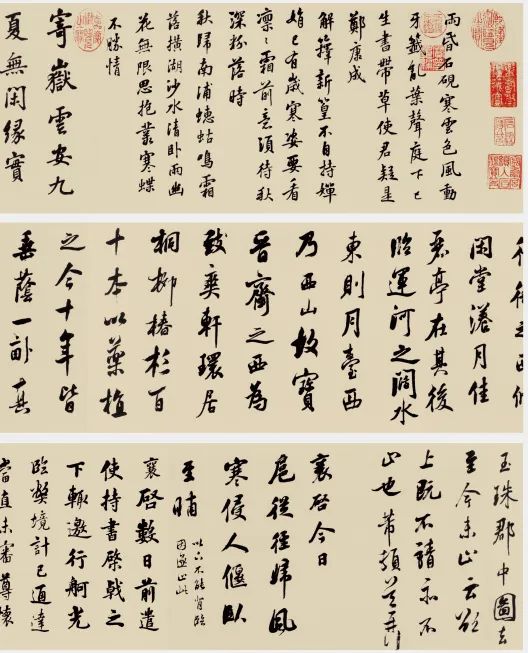 雨昏石硯寒雲色風動
牙籤亂葉聲庭下已
生書帶草使君疑是
鄭康成
解籜新篁不自持嬋
娟已有歲寒姿要看
凜〻霜前意須待秋
深粉落時
秋歸南浦蟪蛄鳴霜
落橫湖沙水清臥雨幽
花無限思抱叢寒蝶
不勝情
寄嶽雲安九
夏無閑緣實
之西翛
閑堂漾月佳
麗亭在其後
臨運河之闊水
東則月臺西
乃西山故寶
晉齋之西為
致爽軒環居
桐柳椿杉百
十本以藥植
之今十年皆
垂蔭一畝真
郡中圖去
至今未止云欲
上既不請亦不
止也芾頓首
襄啓今日
扈從徑歸風
寒侵人偃臥
至晡
襄啓數日前遣
使持書棨戟之
下輒邀行舸光
臨弊境計已通達
當直未審尊懷